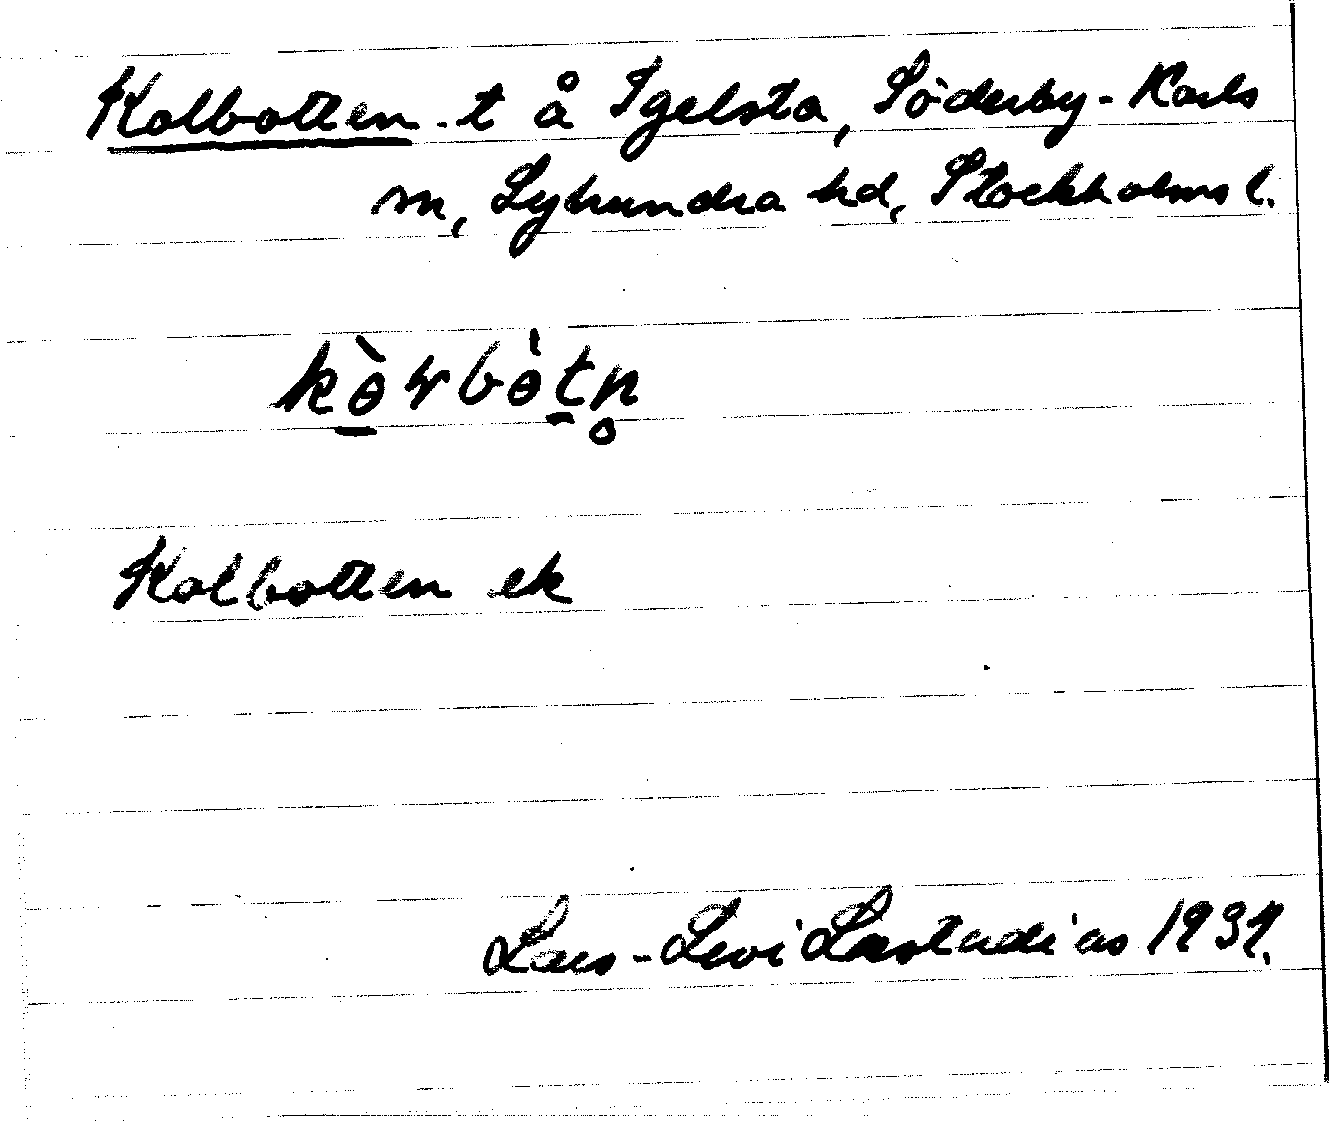 Kolbotten. t å Igelsta, Söderby-Karls
sn, Lyhundra hd, Stockholms l.
Kolbotten ek
Lars-Levi Læstadius 1937.